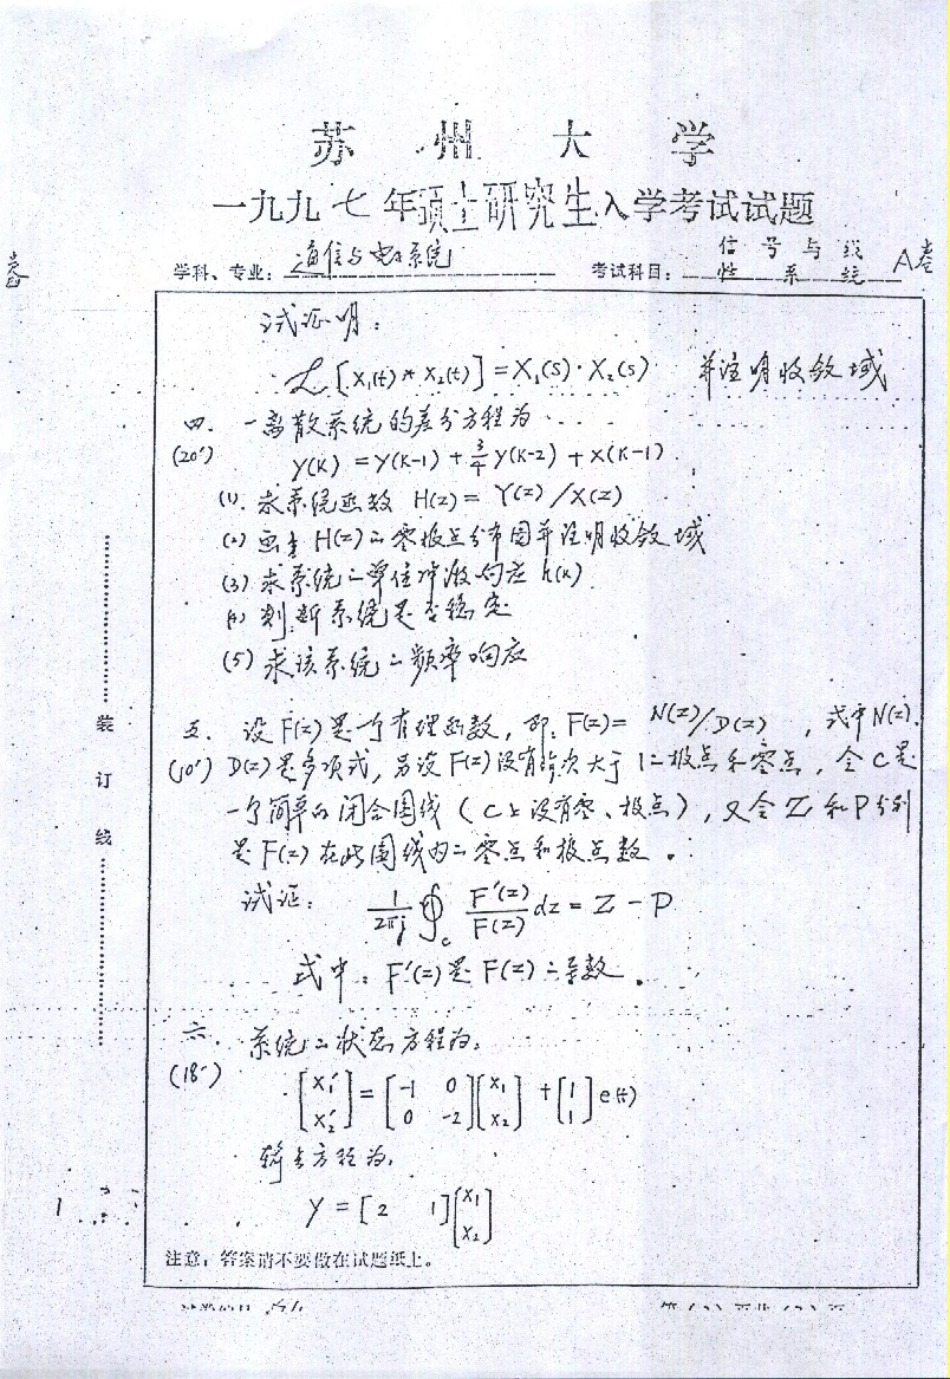 苏 州 大 学
一九九七年硕士研究生入学考试试题
学科、专业: 通信与电子系统 考试科目: 信号与线性系统 A卷
卷
试证明:
ℒ[x₁(t) * x₂(t)] = X₁(s)·X₂(s) 并注明收敛域
四. 一离散系统的差分方程为
(20') y(k) = y(k-1) + 3/4 y(k-2) + x(k-1).
(1). 求系统函数 H(z) = Y(z)/X(z)
(2) 画出 H(z)二零极点分布图并注明收敛域
(3) 求系统二单位冲激响应 h(k)
(4) 判断系统是否稳定
(5) 求该系统二频率响应
五. 设F(z)是一个有理函数, 即: F(z) = N(z)/D(z), 式中N(z).
(10') D(z)是多项式, 另设F(z)没有阶次大于1二极点和零点, 令C是
一个简单的闭合围线(C上没有零、极点), 又令Z和P分别
是F(z)在此围线内二零点和极点数.
试证: 1/2πj ∮c F'(z)/F(z) dz = Z - P
式中: F'(z)是F(z)二导数.
六. 系统二状态方程为:
(18') [x₁' x₂'] = [-1 0 0 -2][x₁ x₂] + [1 1] e(t)
输出方程为,
y = [2 1][x₁ x₂]
注意: 答案请不要做在试题纸上。
装
订
线